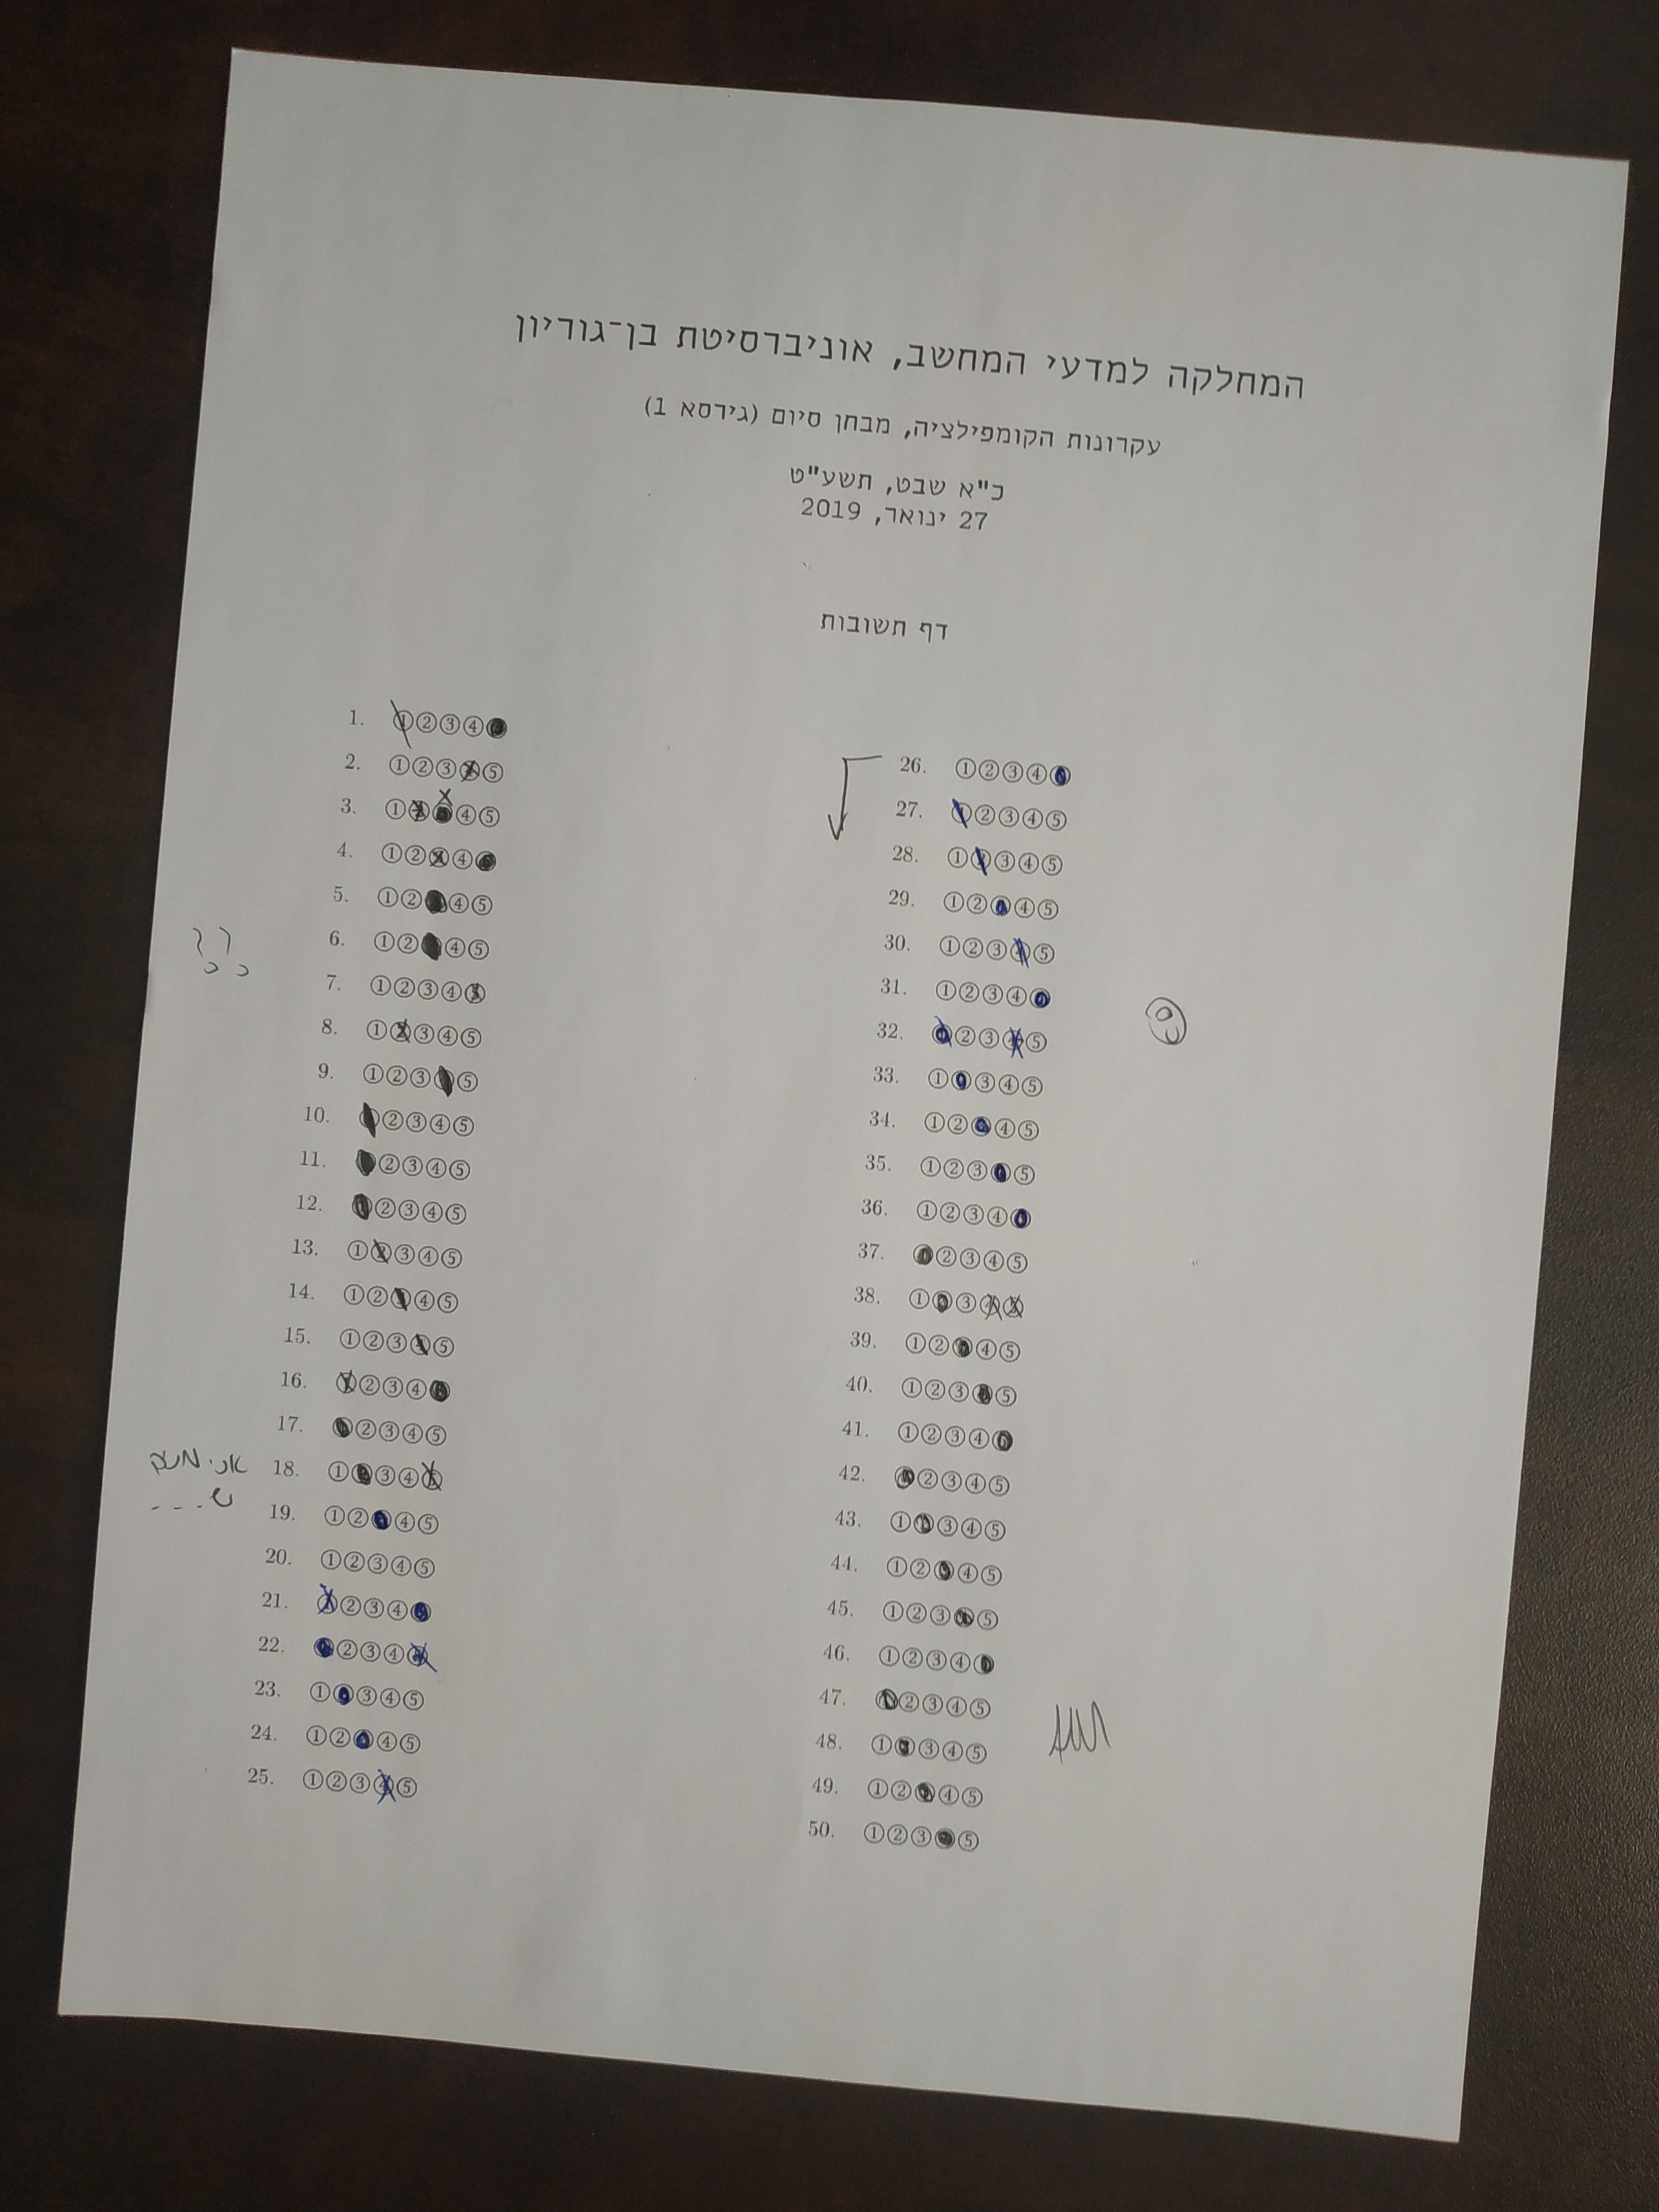 המחלקה למדעי המחשב, אוניברסיטת בן־גוריון
עקרונות הקומפילציה, מבחן סיום (גירסא 1)
כ"א שבט, תשע"ט
27 ינואר, 2019
דף תשובות
1. ① ② ③ ④
2. ① ② ③ ④ ⑤
3. ① ② ④ ⑤
4. ① ② ③ ④
5. ① ② ④ ⑤
6. ① ② ④ ⑤
7. ① ② ③ ④ ⑤
8. ① ② ③ ④ ⑤
9. ① ② ③ ⑤
10. ② ③ ④ ⑤
11. ② ③ ④ ⑤
12. ② ③ ④ ⑤
13. ① ② ③ ④ ⑤
14. ① ② ④ ⑤
15. ① ② ③ ④ ⑤
16. ① ② ③ ④
17. ② ③ ④ ⑤
אני
18. ① ③ ④ ⑤
ש---
19. ① ② ④ ⑤
20. ① ② ③ ④ ⑤
21. ① ② ③ ④
22. ② ③ ④ ⑤
23. ① ③ ④ ⑤
24. ① ② ④ ⑤
25. ① ② ③ ④ ⑤
26. ① ② ③ ④
27. ① ② ③ ④ ⑤
28. ① ② ③ ④ ⑤
29. ① ② ④ ⑤
30. ① ② ③ ④ ⑤
31. ① ② ③ ④
32. ② ③ ④ ⑤
33. ① ③ ④ ⑤
34. ① ② ④ ⑤
35. ① ② ③ ⑤
36. ① ② ③ ④
37. ② ③ ④ ⑤
38. ① ③ ④ ⑤
39. ① ② ④ ⑤
40. ① ② ③ ⑤
41. ① ② ③ ④
42. ② ③ ④ ⑤
43. ① ③ ④ ⑤
44. ① ② ④ ⑤
45. ① ② ③ ⑤
46. ① ② ③ ④
47. ② ③ ④ ⑤
48. ① ③ ④ ⑤
49. ① ② ④ ⑤
50. ① ② ③ ⑤